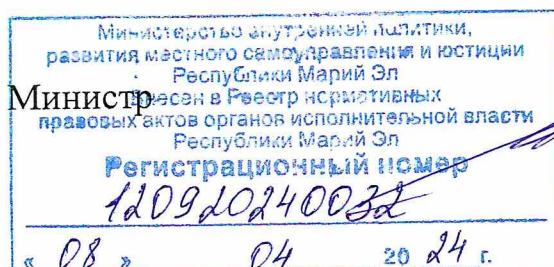 Министерство внутренней политики,
развития местного самоуправления и юстиции
Республики Марий Эл
Министр
Внесен в Реестр нормативных
правовых актов органов исполнительной власти
Республики Марий Эл
Регистрационный номер
120920240032
« 08 » 04 20 24 г.